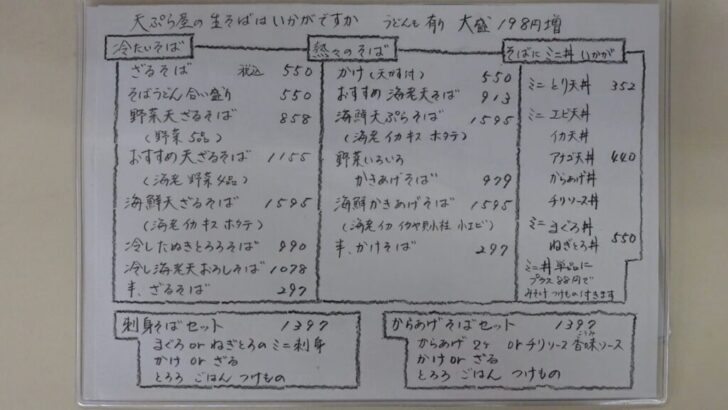 天ぷら屋の生そばはいかがですか うどんも有り 大盛198円増
冷たいそば
ざるそば 税込 550
そばうどん合い盛り 550
野菜天ざるそば 858
(野菜5品)
おすすめ天ざるそば 1155
(海老 野菜4品)
海鮮天ざるそば 1595
(海老 イカ キス ホタテ)
冷したぬきとろろそば 990
冷し海老天おろしそば 1078
半、ざるそば 297
熱々のそば
かけ(天かす付) 550
おすすめ海老天そば 913
海鮮天ぷらそば 1595
(海老 イカ キス ホタテ)
野菜いろいろ
かきあげそば 979
海鮮かきあげそば 1595
(海老 イカ イタヤ貝 小柱 小エビ)
半、かけそば 297
そばにミニ丼いかが
ミニ とり天丼 352
ミニ エビ天丼
イカ天丼
アナゴ天丼 440
からあげ丼
チリソース丼
ミニ まぐろ丼
ねぎとろ丼 550
ミニ丼単品に
プラス88円で
みそ汁つけもの付きます
刺身そばセット 1397
まぐろorねぎとろのミニ刺身
かけorざる
とろろ ごはん つけもの
からあげそばセット 1397
からあげ2ヶ orチリソース 香味ソース
かけorざる
とろろ ごはん つけもの